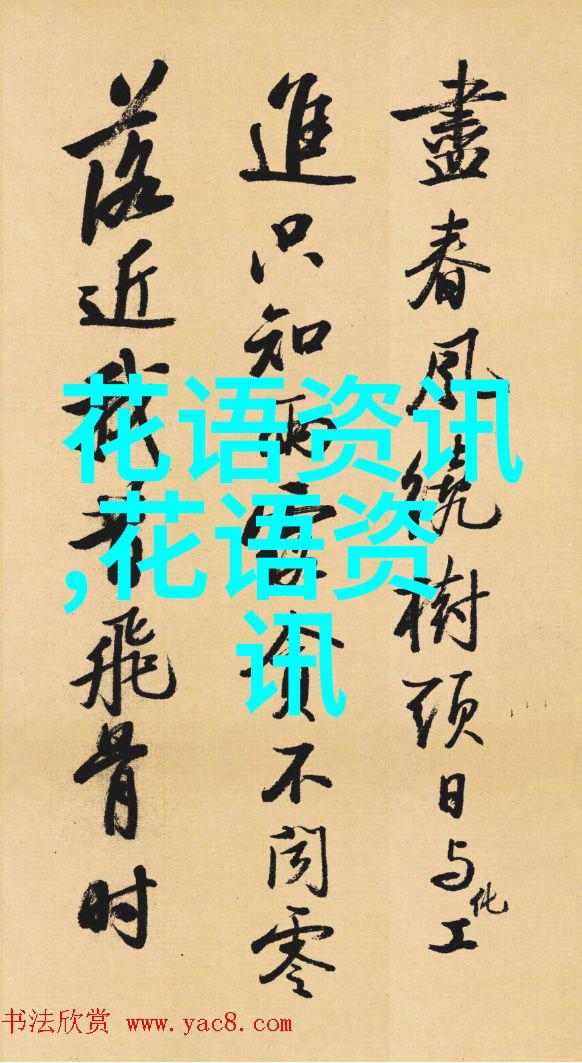 盡春風繞樹頭日与化工
進只知雨露貪不聞零
落近我昔飛骨时
花语资讯
,花语资
讯
书法欣赏 www.yac8.com